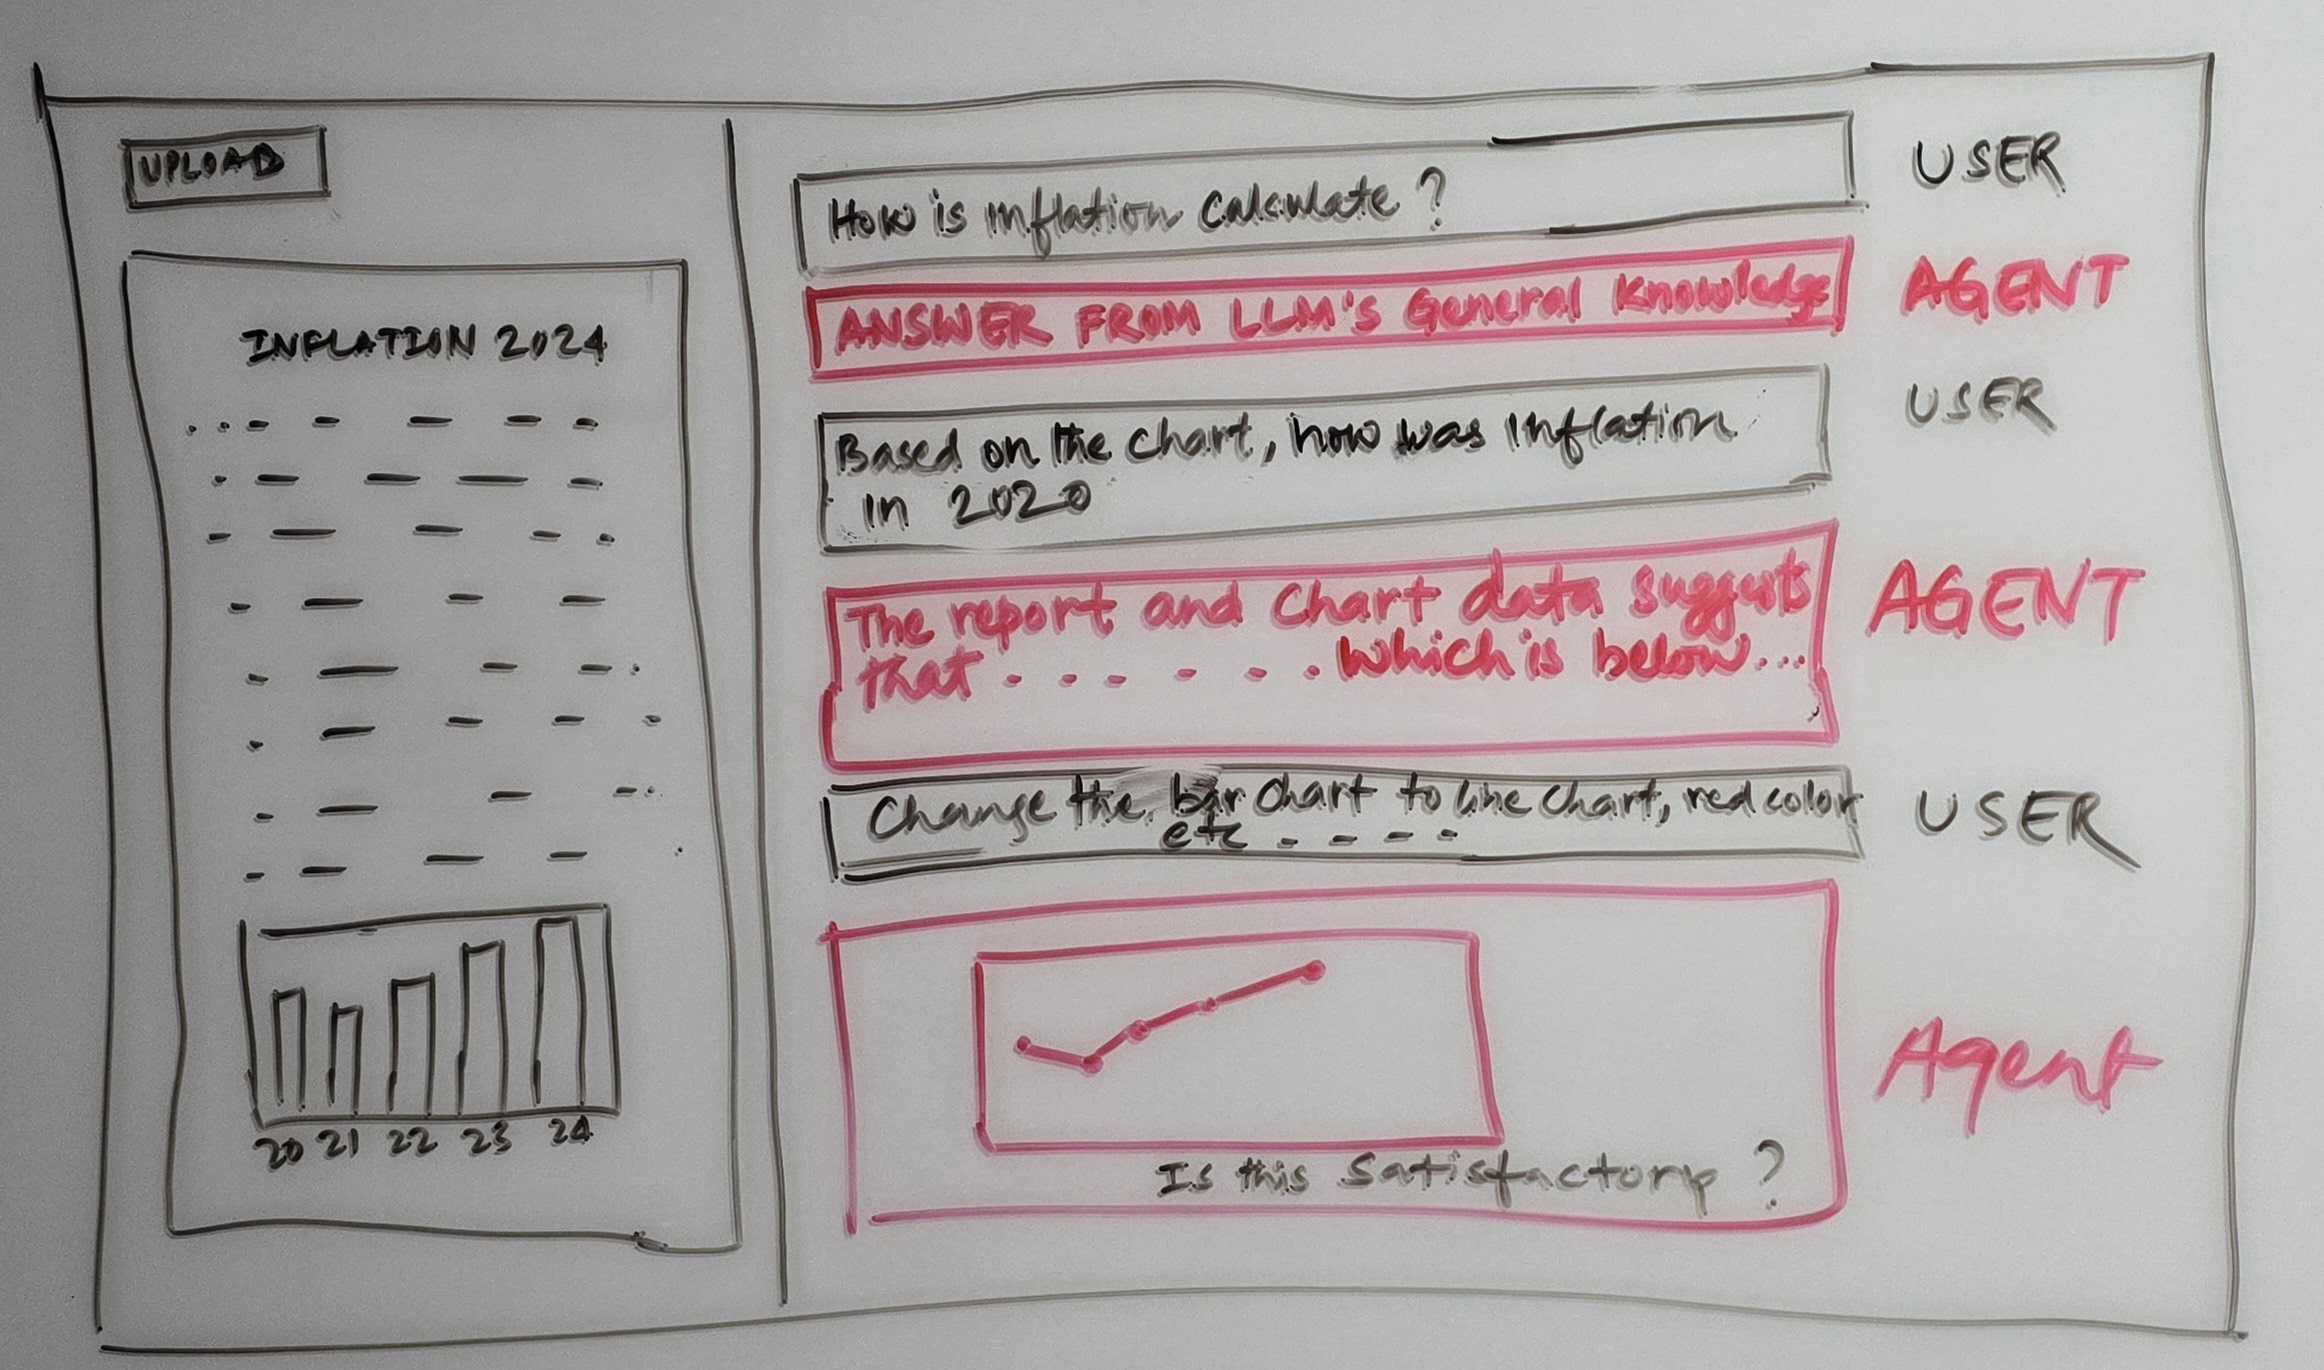 UPLOAD
INFLATION 2024
20 21 22 23 24
How is inflation calculate ?
USER
ANSWER FROM LLM's General Knowledge
AGENT
Based on the chart, how was inflation
in 2020
USER
The report and Chart data suggests
that . . . . . . which is below...
AGENT
Change the bar chart to line chart, red color
etc - - - -
USER
Is this satisfactory ?
Agent